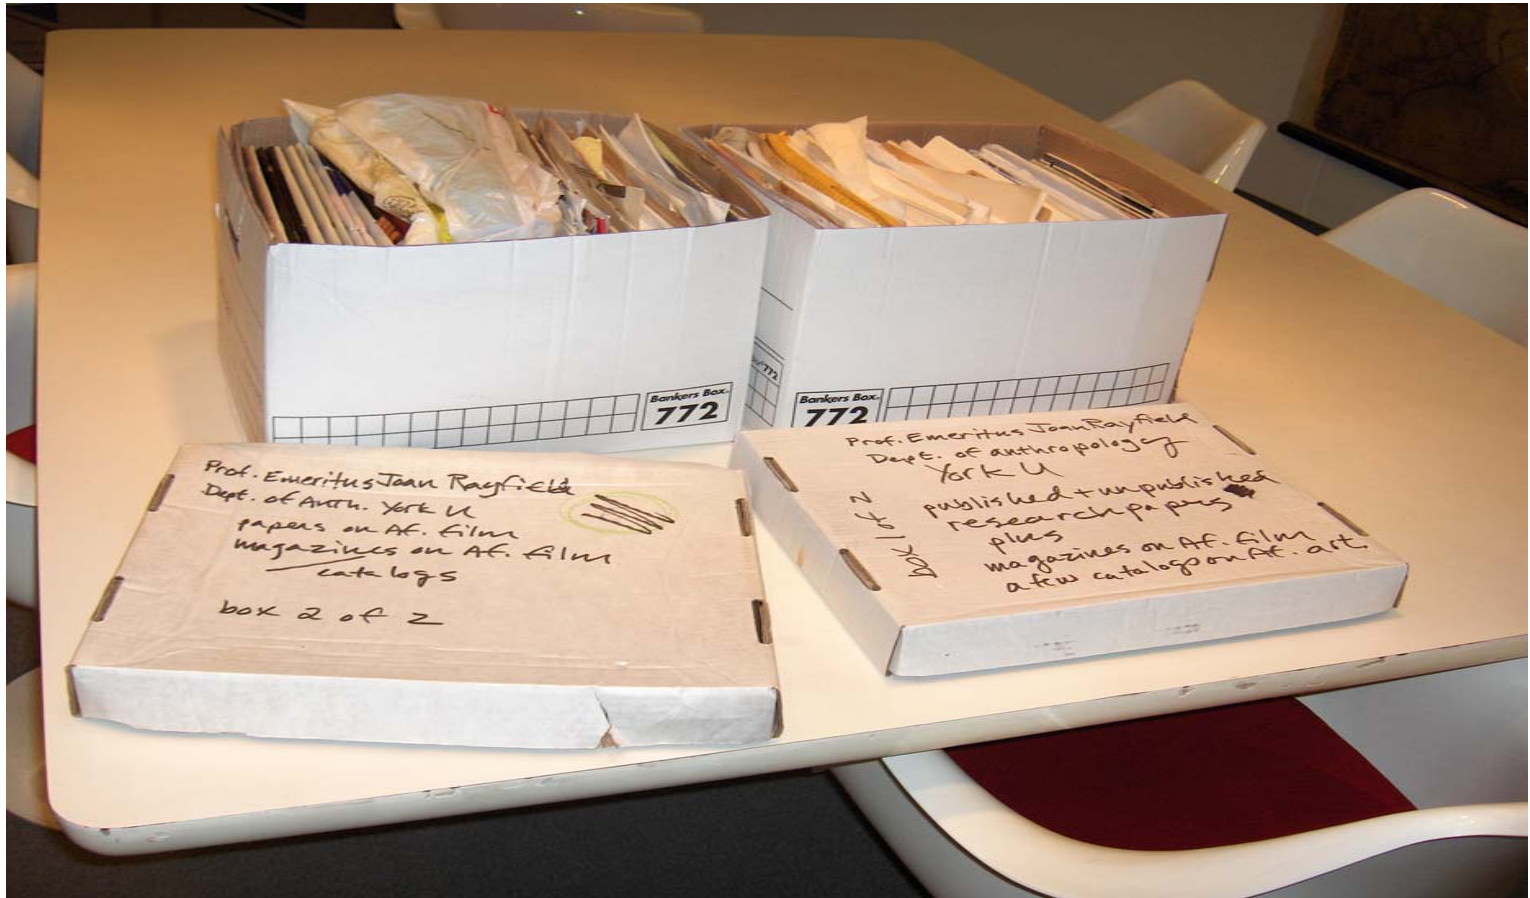 Bankers Box
772
772
Bankers Box
772
Prof. Emeritus Joan Rayfield
Dept. of Anth. York U
papers on Af. film
magazines on Af. film
catalogs
box 2 of 2
Prof. Emeritus Joan Rayfield
Dept. of anthropology
York U
published + unpublished
research papers
plus
magazines on Af. film
a few catalogs on Af. art.
box 1 of 2